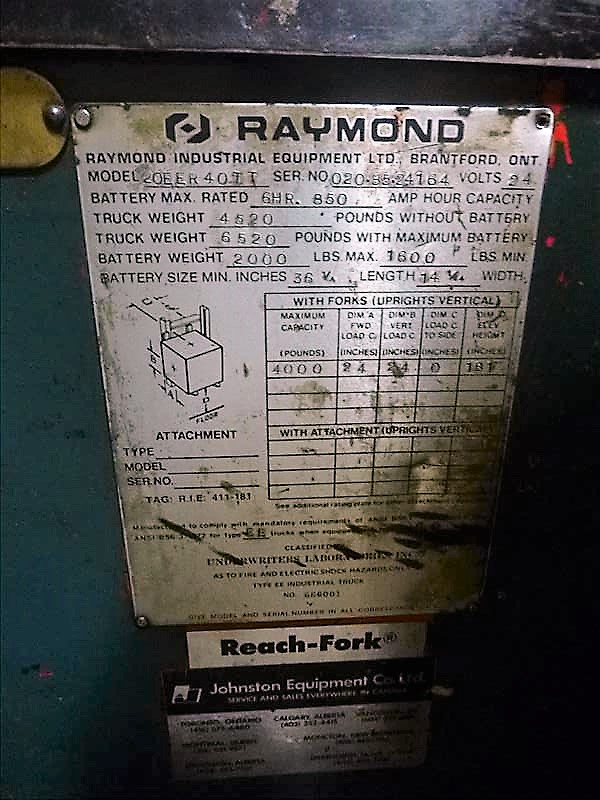 RAYMOND
RAYMOND INDUSTRIAL EQUIPMENT LTD., BRANTFORD, ONT.
MODEL 20EER40TT SER. NO. 020-85-24164 VOLTS 24
BATTERY MAX. RATED 6HR. 850 AMP HOUR CAPACITY
TRUCK WEIGHT 4520 POUNDS WITHOUT BATTERY
TRUCK WEIGHT 6520 POUNDS WITH MAXIMUM BATTERY
BATTERY WEIGHT 2000 LBS. MAX. 1600 LBS. MIN.
BATTERY SIZE MIN. INCHES 36 ¼ LENGTH 14 ¼ WIDTH
WITH FORKS (UPRIGHTS VERTICAL)
MAXIMUM CAPACITY (POUNDS) DIM A FWD LOAD C. (INCHES) DIM B VERT LOAD C. (INCHES) DIM C LOAD C. TO SIDE (INCHES) DIM D ELEV HEIGHT (INCHES)
4000 24 24 0
C
B
A
D
FLOOR
ATTACHMENT
WITH ATTACHMENT (UPRIGHTS VERTICAL)
TYPE
MODEL
SER. NO.
TAG: R.I.E. 411-183
See additional rating plate for other attachment
Manufactured to comply with mandatory requirements of ANSI
for Type EE trucks when equipped
CLASSIFIED
UNDERWRITERS LABORATORIES INC.
AS TO FIRE AND ELECTRIC SHOCK HAZARDS ONLY
TYPE EE INDUSTRIAL TRUCK
NO. 666001
GIVE MODEL AND SERIAL NUMBER IN ALL CORRESPONDENCE
Reach-Fork®
Johnston Equipment Co. Ltd.
SERVICE AND SALES EVERYWHERE IN CANADA
TORONTO, ONTARIO CALGARY, ALBERTA VANCOUVER
MONTREAL, QUEBEC MONCTON, NEW BRUNSWICK
ALBERTA